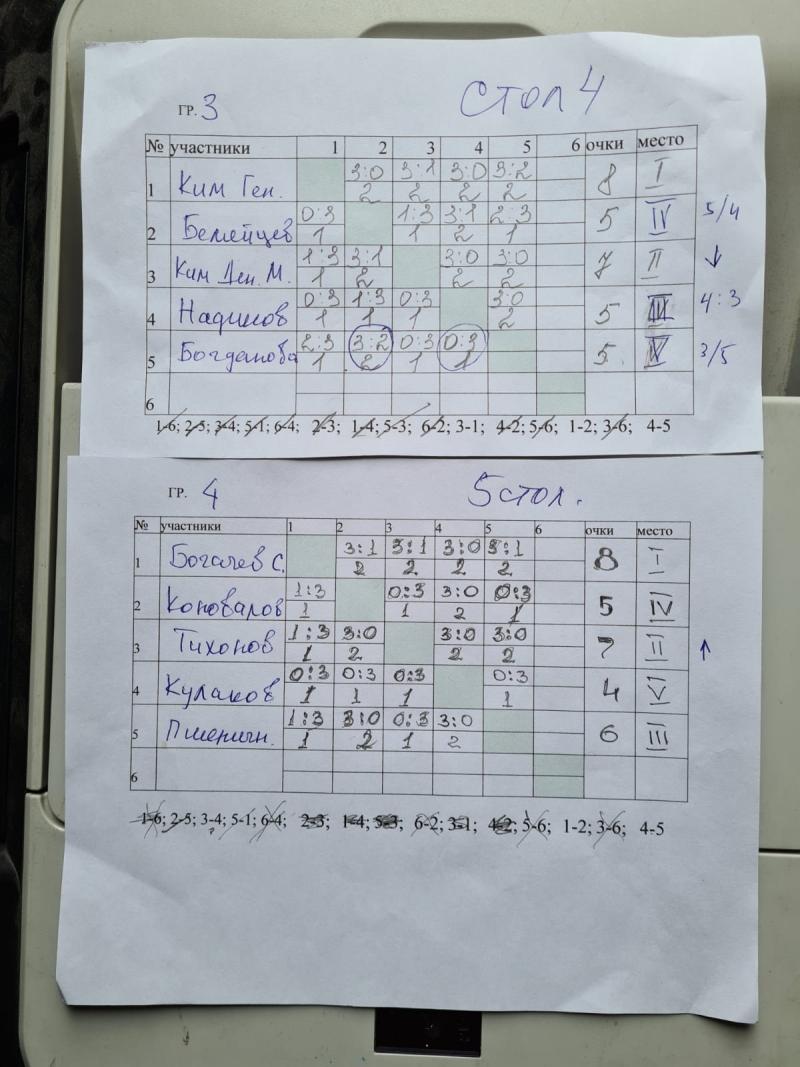 ГР. 3 СТОЛ 4
№ участники 1 2 3 4 5 6 очки место
1 Ким Ген. 3:0 3:1 3:0 3:2 8 I
2 2 2 2
2 Белейцев 0:3 1:3 3:1 2:3 5 IV 5/4
1 1 2 1
3 Ким Ден. М. 1:3 3:1 3:0 3:0 7 II ↓
1 2 2 2
4 Надилов 0:3 1:3 0:3 3:0 5 III 4:3
1 1 1 2
5 Богданова 2:3 3:2 0:3 0:3 5 V 3/5
1 2 1 1
6
1-6; 2-5; 3-4; 5-1; 6-4; 2-3; 1-4; 5-3; 6-2; 3-1; 4-2; 5-6; 1-2; 3-6; 4-5
ГР. 4 5 стол.
№ участники 1 2 3 4 5 6 очки место
1 Богачев С. 3:1 3:1 3:0 3:1 8 I
2 2 2 2
2 Коновалов 1:3 0:3 3:0 0:3 5 IV
1 1 2 1
3 Тихонов 1:3 3:0 3:0 3:0 7 II ↑
1 2 2 2
4 Кулаков 0:3 0:3 0:3 0:3 4 V
1 1 1 1
5 Пшеничн. 1:3 3:0 0:3 3:0 6 III
1 2 1 2
6
1-6; 2-5; 3-4; 5-1; 6-4; 2-3; 1-4; 5-3; 6-2; 3-1; 4-2; 5-6; 1-2; 3-6; 4-5